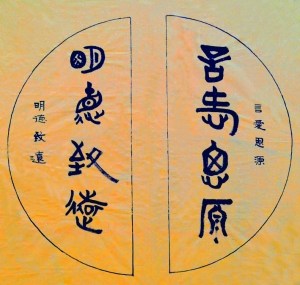 言愛思源
言愛思源
明德致遠
明德致遠